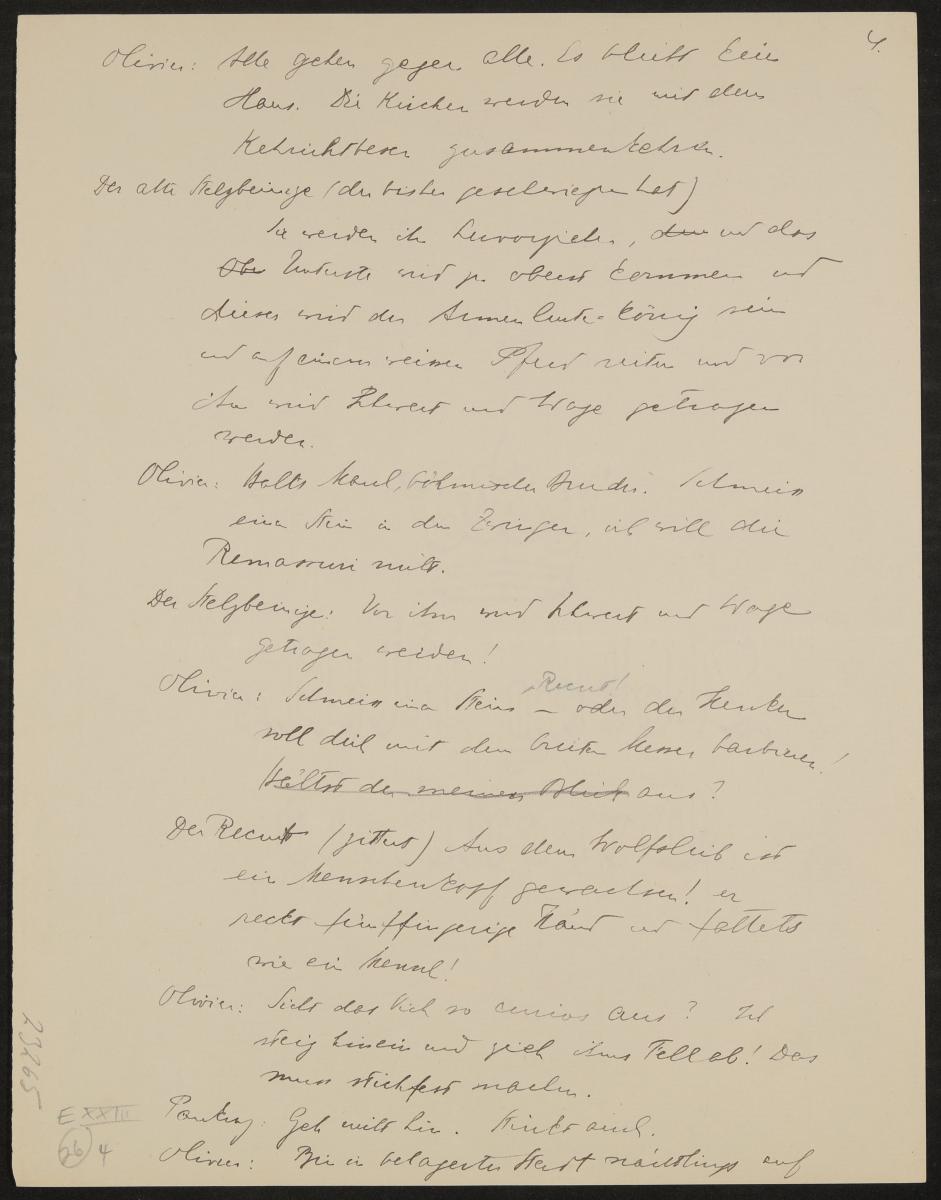 4.
Olivier: Alle gehen gegen alle. Es bleibt kein
Haus. Die Kirchen werden sie mit dem
Kehrichtbesen zusammenkehren.
Der alte Stelzbeinige (der bisher geschwiegen hat)
Sie werden ihn hervorziehen, den und das
Obe Unterste wird zu oberst kommen und
dieser wird der Armenleute-König sein
und auf einem weissen Pferd reiten und vor
ihm wird Schwert und Wage getragen
werden.
Olivier: Halts Maul, böhmischer Bruder. Schmeiss
einen Stein in den Zwinger, ich will die
Remassuri nicht.
Der Stelzbeinige: Vor ihm wird Schwert und Wage
getragen werden!
Recrut!
Olivier: Schmeiss einen Stein – oder der Henker
soll dich mit dem breiten Messer barbieren!
Hältst du meinen Blick aus?
Der Recrut (zittert) Aus dem Wolfsleib ist
ein Menschenkopf gewachsen! er
reckt fünffingerige Händ und faltets
wie ein Mensch!
Olivier: Sieht das Vieh so curios aus? Ich
steig hinein und zieh ihms Fell ab! Das
muss stichfest machen.
Pankraz: Geh nicht hin. Stinkt auch.
Olivier: Bin in belagerter Stadt nächtlings auf
23265
E XXIII
26 4